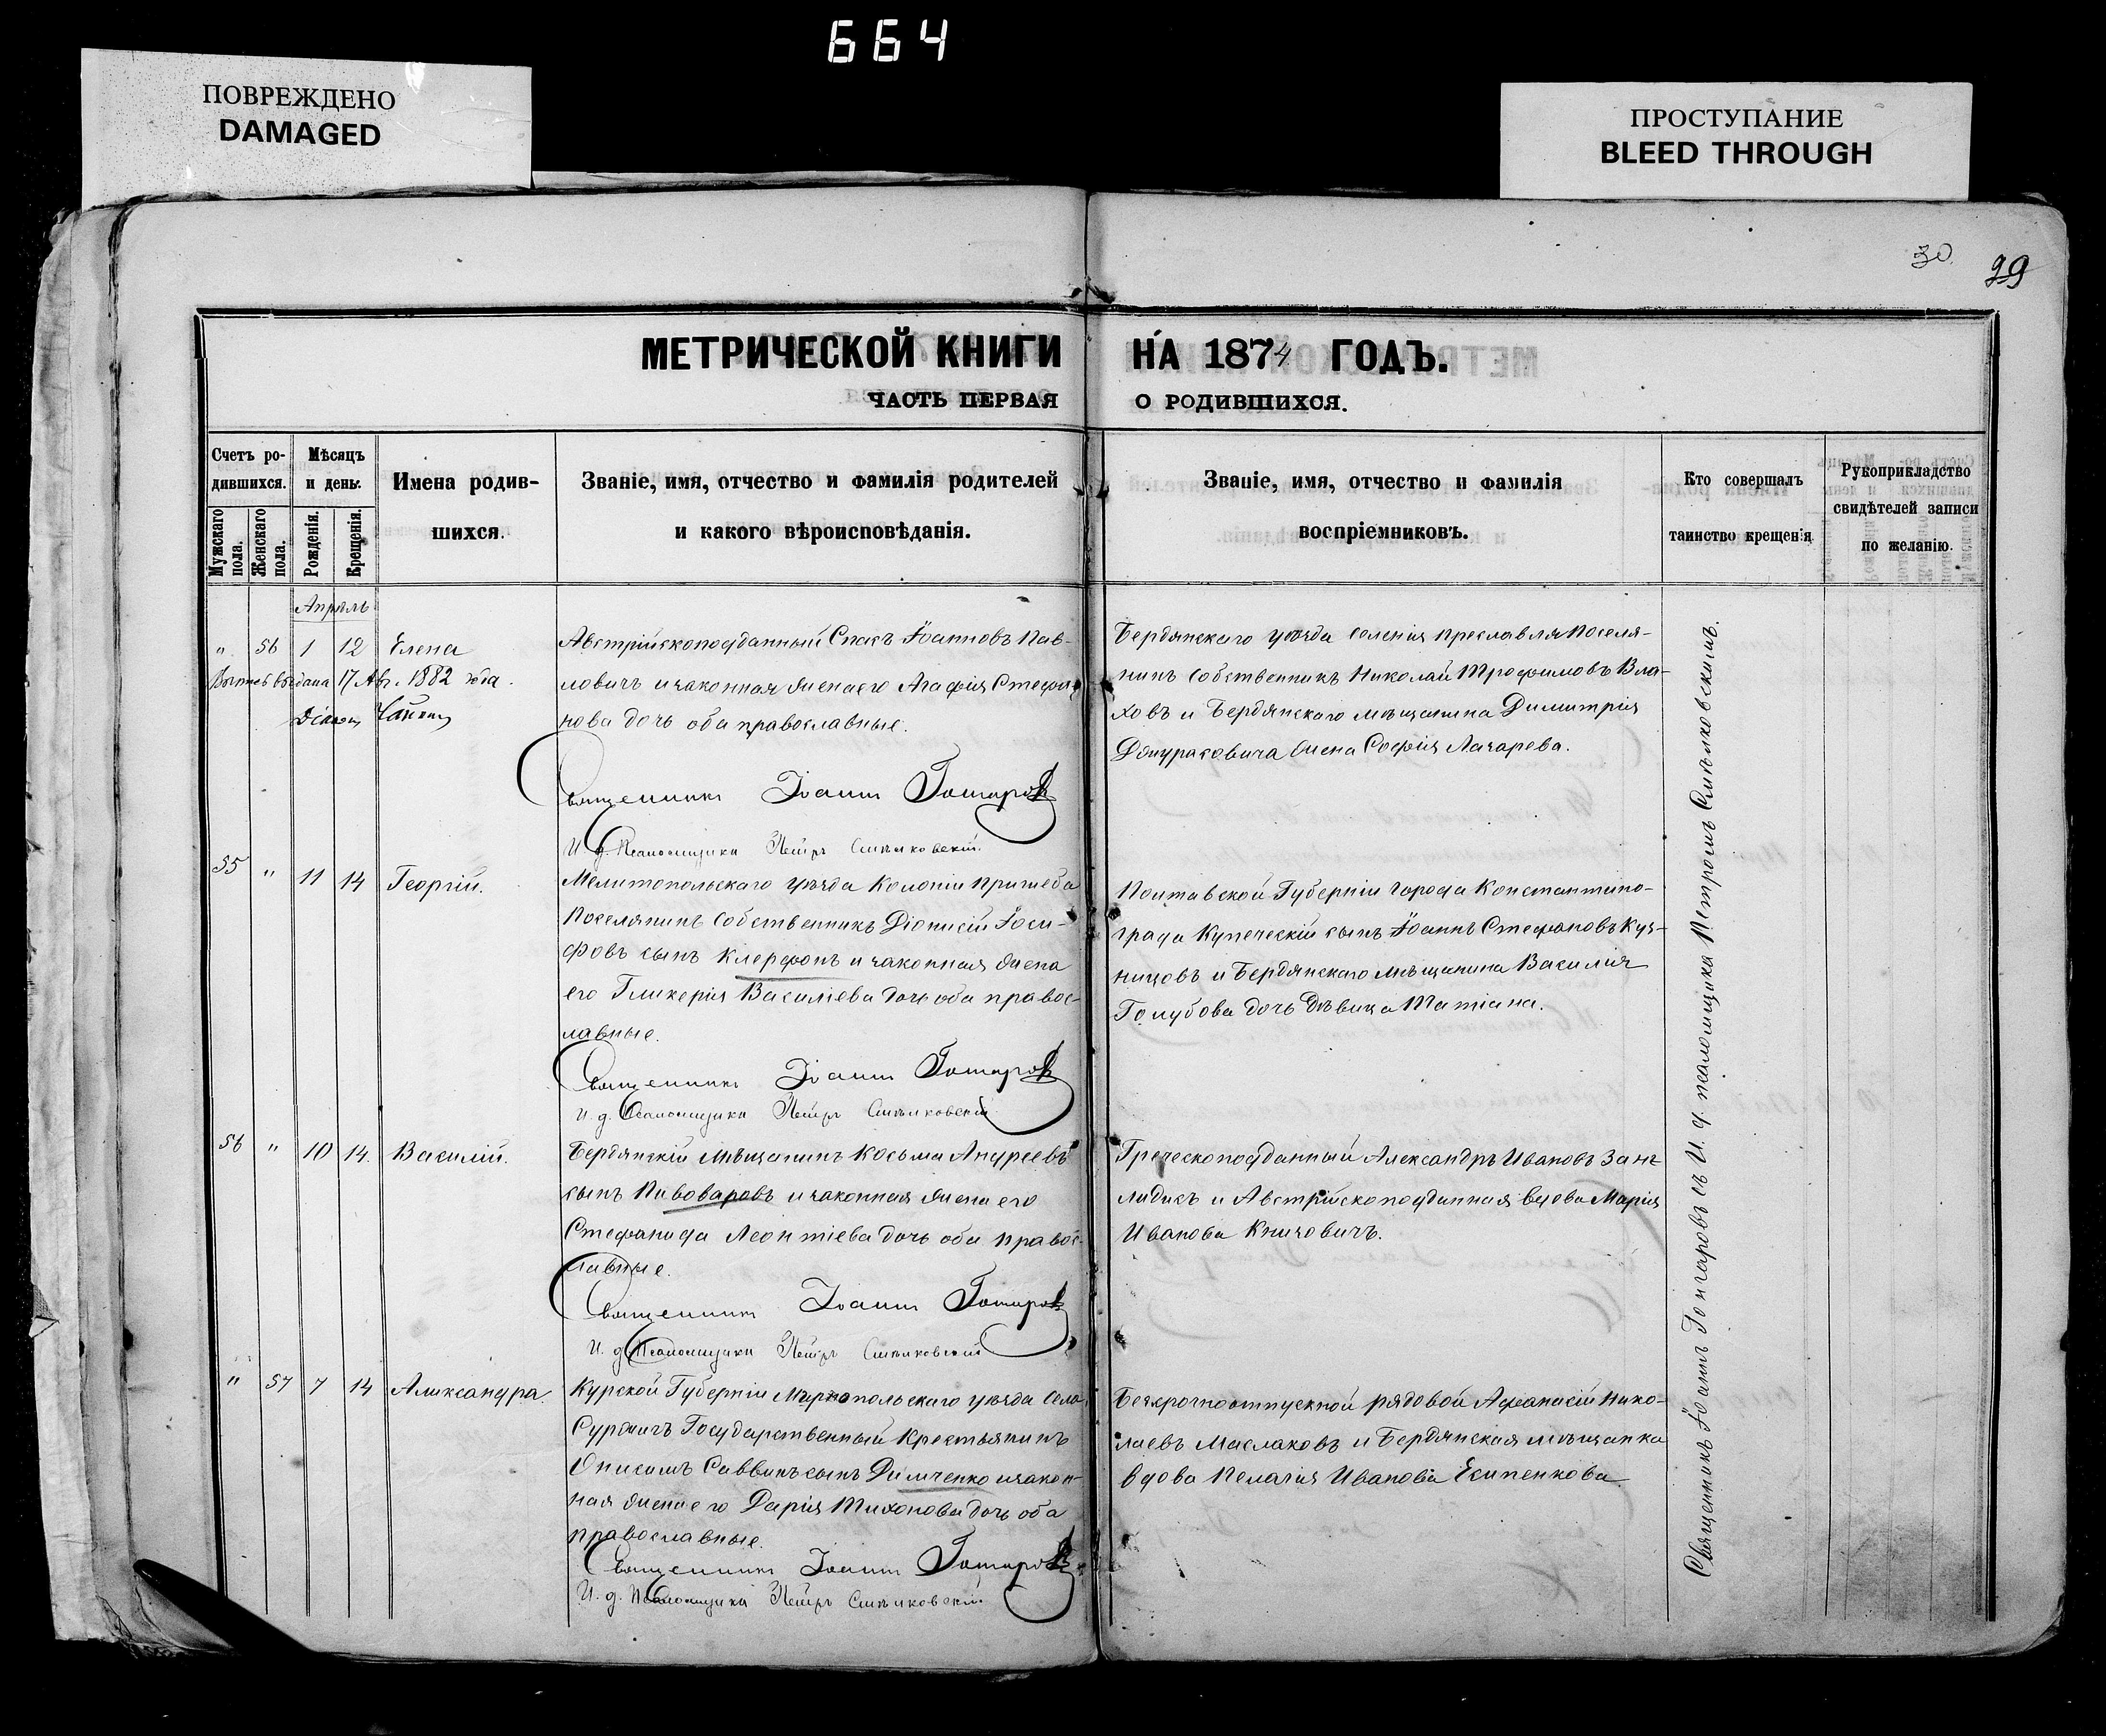 664
ПОВРЕЖДЕНО
DAMAGED
ПРОСТУПАНИЕ
BLEED THROUGH
30.
29
МЕТРИЧЕСКОЙ КНИГИ НА 1874 ГОДЪ.
ЧАСТЬ ПЕРВАЯ О РОДИВШИХСЯ.
Счетъ ро-
дившихся.
Мужскаго пола.
Женскаго пола.
Мѣсяцъ
и день.
Рожденія.
Крещенія.
Имена родив-
шихся.
Званіе, имя, отчество и фамилія родителей
и какого вѣроисповѣданія.
Званіе, имя, отчество и фамилія
воспріемниковъ.
Кто совершалъ
таинство крещенія
Рукоприкладство
свидѣтелей записи
по желанію.
Апрѣль
" 56 1 12 Елена
выдана 17 Авг. 1882 года.
Австрійскоподданный Спасъ Іоанновъ Пав-
ловичъ и законная жена его Агафія Стефа-
нова дочь оба православные.
Священникъ Іоаннъ Гонгаровъ
И. д. Псаломщика Петръ Синьковскій.
Бердянскаго уѣзда селенія Преславля Поселя-
нинъ собственникъ Николай Трофимовъ Вла-
ховъ и Бердянскаго мѣщанина Димитрія
жена Софія Лазарева.
55 " 11 14 Георгій.
Мелитопольскаго уѣзда Колоніи Пришеба
Поселянинъ собственникъ Діонисій Іоси-
фовъ сынъ Клерфонъ и законная жена
его Гликерія Василіева дочь оба правос-
лавные.
Священникъ Іоаннъ Гонгаровъ
И. д. Псаломщика Петръ Синьковскій
Полтавской Губерніи города Константино-
града Купеческій сынъ Іоаннъ Стефановъ Куз-
нецовъ и Бердянскаго мѣщанина Василія
Голубова дочь дѣвица Татіана.
56 " 10 14. Василій.
Бердянскій мѣщанинъ Косьма Андреевъ
сынъ Пивоваровъ и законная жена его
Стефанида Леонтіева дочь оба правос-
лавные.
Священникъ Іоаннъ Гонгаровъ
И. д. Псаломщика Петръ Синьковскій
Греческоподданный Александръ Ивановъ
и Австрійскоподданная вдова Марія
Иванова Князовичъ.
" 57 7 14 Александра.
Курской Губерніи уѣзда села
Государственный Крестьянинъ
Саввинъ сынъ Димченко и закон-
ная жена его Дарія Тихонова дочь оба
православные.
Священникъ Іоаннъ Гонгаровъ
И. д. Псаломщика Петръ Синьковскій
Безсрочноотпускной рядовой Афанасій Нико-
лаевъ Маслаковъ и Бердянская мѣщанка
вдова Пелагія Иванова Есипенкова
Священникъ Іоаннъ Гонгаровъ съ И. д. псаломщика Петромъ Синьковскимъ.